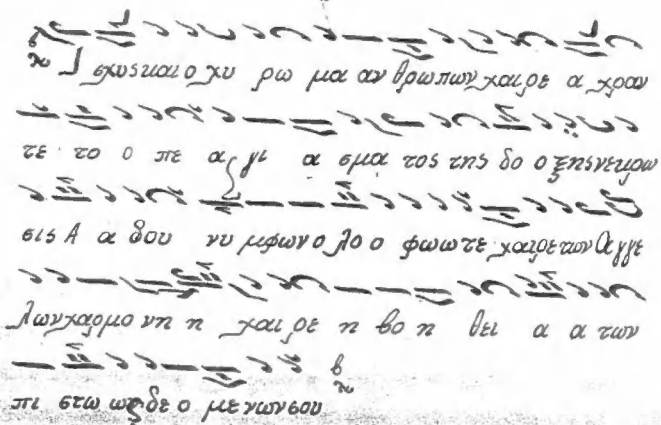 Ισχυς και ο χυ ρω μα αν θρωπων χαιρε α χραν
τε το ο πε α γι α σμα τος της δο ο ξης νεκρω
σις Α α δου νυ μφων ο λο ο φωωτε χαιρε των Αγγε
λων χαρμο νη η χαι ρε η βο η θει α α των
πι στω ως δε ο με νων σου